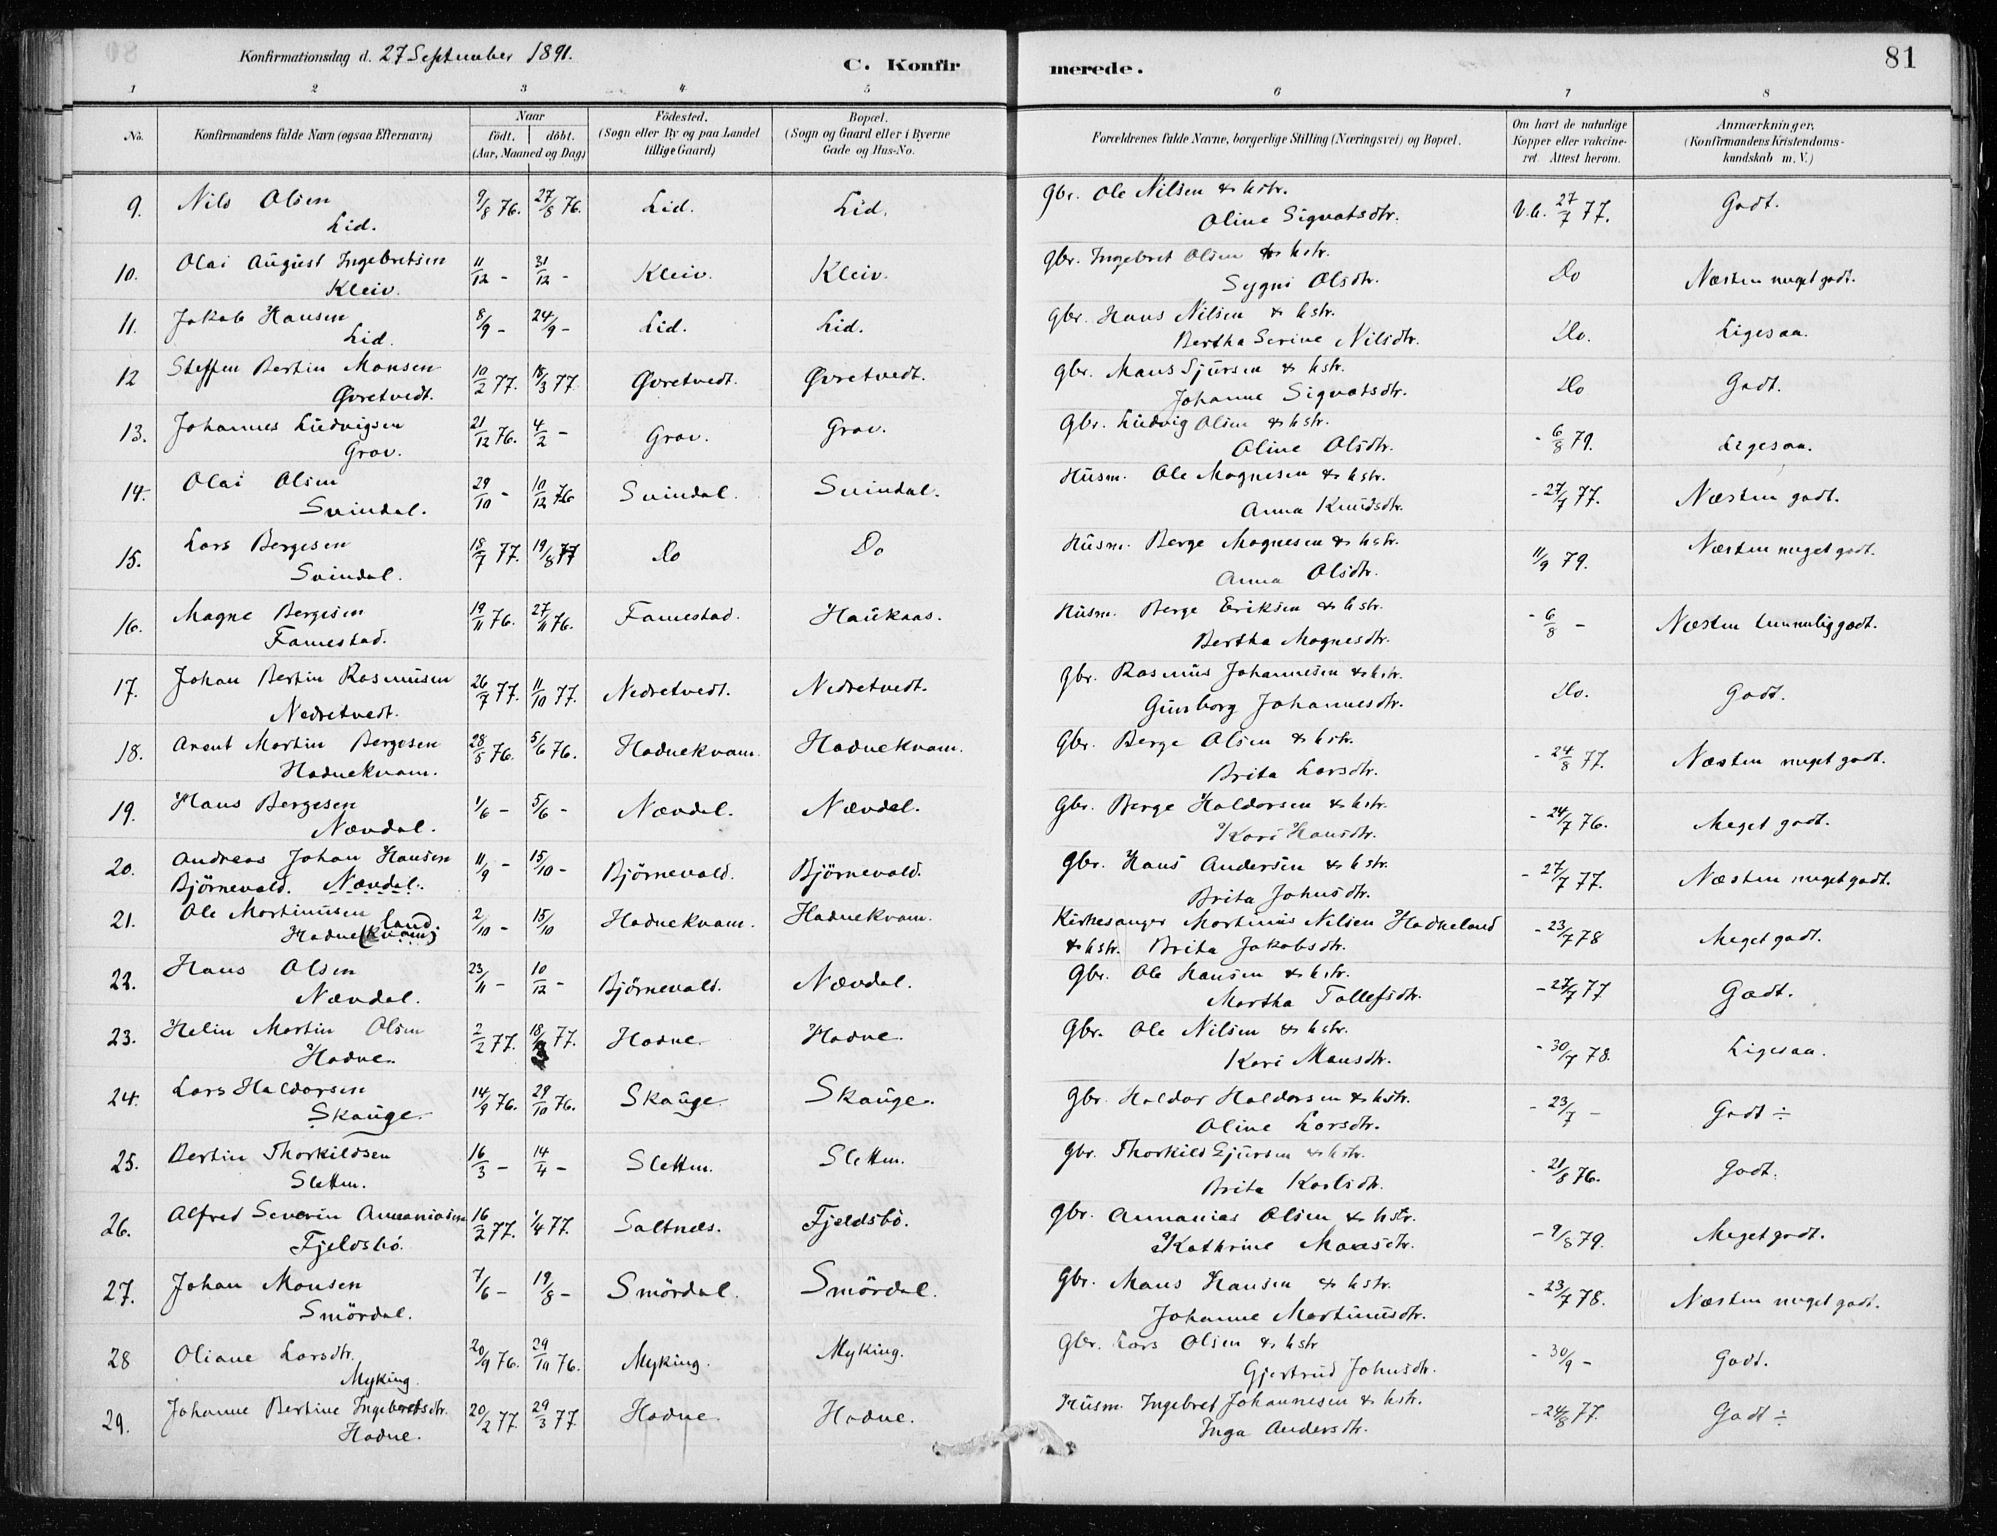 Konfirmationsdag d. 27 September 1891.
C. Konfirmerede.
81
1 2 3 4 5 6 7 8
No. Konfirmandens fulde Navn (ogsaa Efternavn) Naar födt. döbt. (Aar, Maaned og Dag) Födested. (Sogn eller By og paa Landet tillige Gaard) Bopæl. (Sogn og Gaard eller i Byerne Gade og Hus-No. Forældrenes fulde Navne, borgerlige Stilling (Næringsvei) og Bopæl. Om havt de naturlige Kopper eller vakcineret. Attest herom. Anmærkninger. (Konfirmandens Kristendomskundskab m. V.)
9. Nils Olsen Lid. 9/8 76. 27/8 76. Lid. Lid. Gbr. Ole Nilsen & hstr. Oline Sigvatsdtr. V.a. 27/7 77. Godt.
10. Olai August Ingebretsen Kleiv. 11/12 - 31/12 - Kleiv. Kleiv. Gbr. Ingebret Olsen & hstr. Sygni Olsdtr. Do Næsten meget godt.
11. Jakob Hansen Lid. 8/9 - 24/9 - Lid. Lid. Gbr. Hans Nilsen & hstr. Bertha Serine Nilsdtr. Do. Ligesaa.
12 Steffen Bertin Monsen Øvretvedt. 10/2 77. 18/3 77. Øvretvedt. Øvretvedt. Gbr. Mans Sjursen & hstr. Johanne Sigvatsdtr. Do Godt.
13. Johannes Ludvigsen Grov. 21/12 76. 4/2 - Grov. Grov. Gbr. Ludvig Olsen & hstr. Oline Olsdtr. - 6/8 79. Ligesaa.
14. Olai Olsen Svindal. 29/10 - 10/12 76 Svindal. Svindal. Husm. Ole Magnesen & hstr. Anna Knudsdtr. - 27/7 77. Næsten godt.
15. Lars Bergesen Svindal. 18/7 77. 19/8 77 Do Do Husm. Berge Magnesen & hstr. Anna Olsdtr. 11/9 79. Næsten meget godt.
16. Magne Bergesen Famestad. 19/11 76. 27/11 76. Famestad. Haukaas. Husm. Berge Eriksen & hstr. Bertha Magnesdtr. - 6/8 - Næsten temmelig godt.
17. Johan Bertin Rasmusen Nedretvedt. 26/7 77. 11/10 77. Nedretvedt. Nedretvedt. Gbr. Rasmus Johannesen & hstr. Gunborg Johannesdtr. Do. Godt.
18. Arent Martin Bergesen Hodnekvam. 28/5 76. 5/6 76. Hodnekvam. Hodnekvam. Gbr. Berge Olsen & hstr. Brita Larsdtr. - 24/8 77. Næsten meget godt.
19. Hans Bergesen Nævdal. 1/6 - 5/6 - Nævdal. Nævdal. Gbr. Berge Haldorsen & hstr. Kari Hansdtr. - 24/7 76. Meget godt.
20. Andreas Johan Hansen Björnevald. Nævdal. 11/9 - 15/10 - Björnevald. Björnevald. Gbr. Hans Andersen & hstr. Brita Johnsdtr. - 27/7 77. Næsten meget godt.
21. Ole Martinusen Hodne(kvam) land. 2/10 - 15/10 Hodnekvam. Hodnekvam. Kirkesanger Martinus Nilsen Hodneland & hstr. Brita Jakobsdtr. - 23/7 78 Meget godt.
22. Hans Olsen Nævdal. 23/11 - 10/12 - Björnevald. Nævdal. Gbr. Ole Hansen & hstr. Martha Tollefsdtr. - 27/7 77 Godt.
23. Helin Martin Olsen Hodne. 2/2 77. 18/3 77. Hodne. Hodne. Gbr. Ole Nilsen & hstr. Kari Mansdtr. - 30/7 78. Ligesaa.
24. Lars Haldorsen Skauge. 14/9 76. 29/10 76. Skauge. Skauge. Gbr. Haldor Haldorsen & hstr. Oline Larsdtr. - 23/7 - Godt ÷
25. Bertin Thorkildsen Sletten. 16/3 - 14/4 - Sletten. Sletten. Gbr. Thorkild Gjursen & hstr. Brita Karlsdtr. - 21/8 76. Godt.
26. Alfred Severin Annaniasen Fjeldsbö. 16/2 77. 1/4 77. Saltnes. Fjeldsbö. Gbr. Annanias Olsen & hstr. Kathrine Monsdtr. - 9/8 79. Meget godt.
27. Johan Monsen Smördal. 7/6 - 19/8 - Smördal. Smördal. Gbr. Mans Hansen & hstr. Johanne Martinusdtr. - 23/7 78. Næsten meget godt.
28 Oliane Larsdtr. Myking. 20/9 76. 29/10 76. Myking. Myking. Gbr. Lars Olsen & hstr Gjertrud Johnsdtr. - 30/9 - Godt.
29. Johanne Bertine Ingebretsdtr. Hodne. 20/2 77. 29/3 77. Hodne. Hodne. Husm. Ingebret Johannesen & hstr. Inga Andersdtr. - 24/8 77. Godt ÷